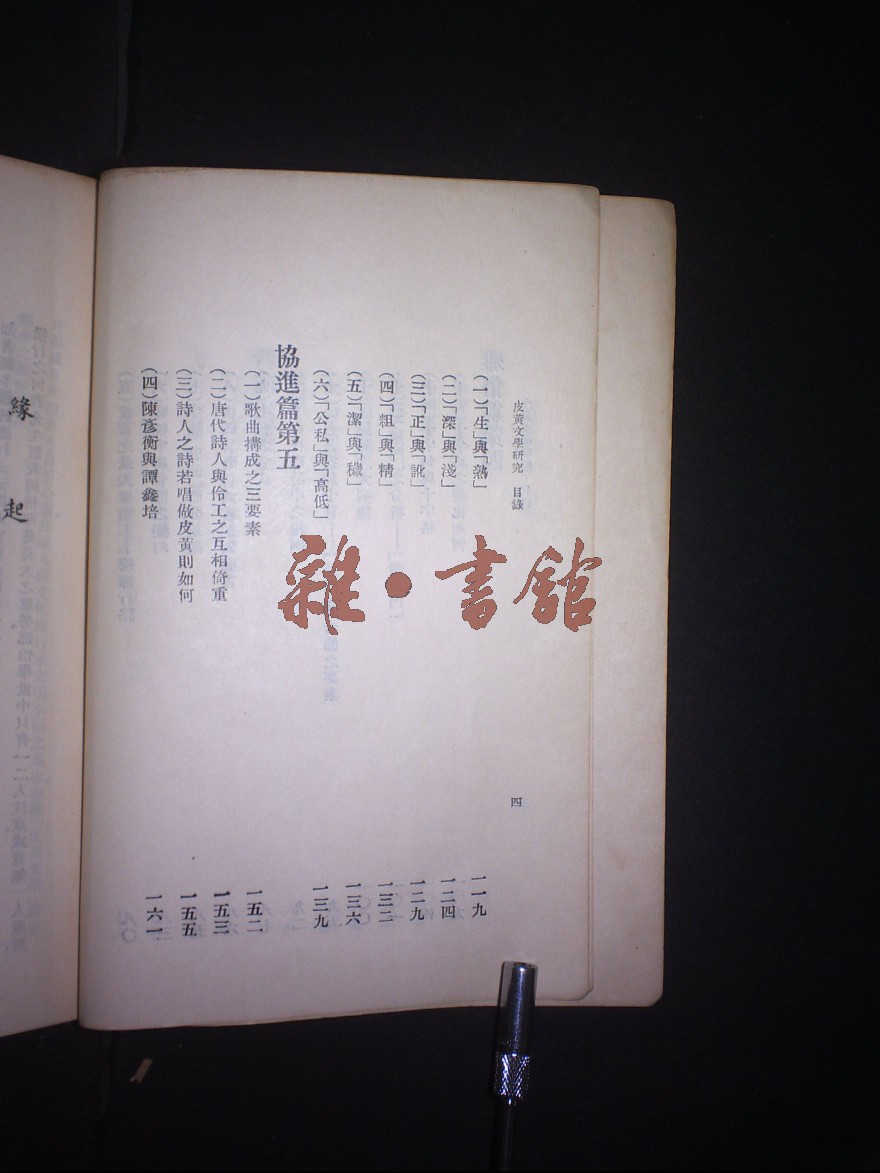 皮黃文學研究 目錄
四
(一)「生」與「熟」 一一九
(二)「深」與「淺」 一二四
(三)「正」與「訛」 一二九
(四)「粗」與「精」 一三二
(五)「潔」與「穢」 一三六
(六)「公私」與「高低」 一三九
協進篇第五
(一)歌曲搆成之三要素 一五二
(二)唐代詩人與伶工之互相倚重 一五三
(三)詩人之詩若唱做皮黃則如何 一五五
(四)陳彥衡與譚鑫培 一六一
緣起
雜·書館